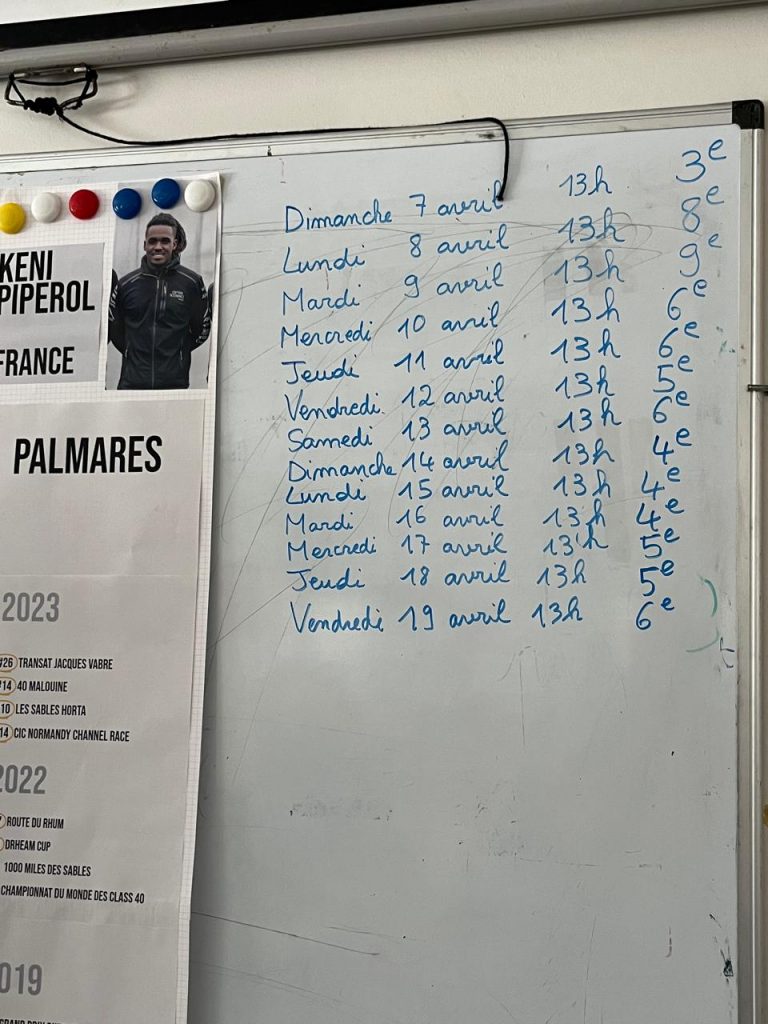 KENI
PIPEROL
FRANCE
PALMARES
2023
#26 TRANSAT JACQUES VABRE
#14 40 MALOUINE
10 LES SABLES HORTA
14 CIC NORMANDY CHANNEL RACE
2022
ROUTE DU RHUM
DRHEAM CUP
1000 MILES DES SABLES
CHAMPIONNAT DU MONDE DES CLASS 40
2019
Dimanche 7 avril 13h 3e
Lundi 8 avril 13h 8e
Mardi 9 avril 13h 9e
Mercredi 10 avril 13h 6e
Jeudi 11 avril 13h 6e
Vendredi 12 avril 13h 5e
Samedi 13 avril 13h 6e
Dimanche 14 avril 13h 4e
Lundi 15 avril 13h 4e
Mardi 16 avril 13h 4e
Mercredi 17 avril 13h 5e
Jeudi 18 avril 13h 5e
Vendredi 19 avril 13h 6e